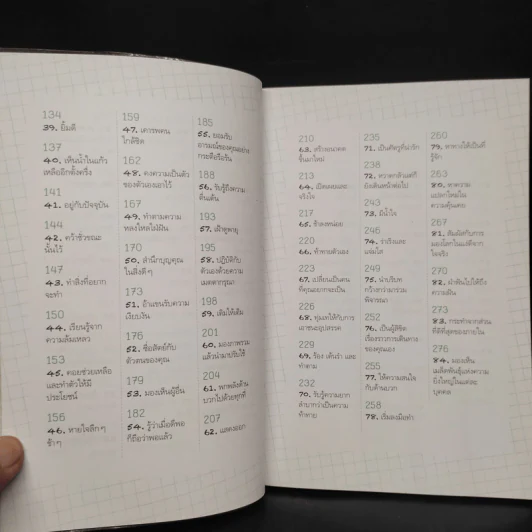 134
39. ยิ้มดี
137
40. เห็นน้ำในแก้ว
เหลืออีกตั้งครึ่ง
141
41. อยู่กับปัจจุบัน
144
42. คว้าชั่วขณะ
นั้นไว้
147
43. ทำสิ่งที่อยาก
จะทำ
150
44. เรียนรู้จาก
ความล้มเหลว
153
45. คอยช่วยเหลือ
และทำตัวให้มี
ประโยชน์
156
46. หายใจลึก ๆ
ช้า ๆ
159
47. เคารพคน
ใกล้ชิด
162
48. คงความเป็นตัว
ของตัวเองเอาไว้
167
49. ทำตามความ
หลงใหลไม่มีมัน
170
50. สำนึกบุญคุณ
ในสิ่งดี ๆ
173
51. อ้าแขนรับความ
เงียบงัน
176
52. ซื่อสัตย์กับ
ตัวตนของคุณ
179
53. มองเห็นผู้อื่น
182
54. รู้ว่าเมื่อดีพอ
ก็ถือว่าพอแล้ว
185
55. ยอมรับ
อารมณ์ของคุณอย่าง
กระตือรือร้น
188
56. รับรู้ถึงความ
ตื่นเต้น
193
57. เฝ้าดูพายุ
195
58. ปฏิบัติกับ
ตัวเองด้วยความ
เมตตากรุณา
198
59. เติมให้เต็ม
201
60. มองภาพรวม
แล้วนำมาปรับใช้
204
61. พกพลังด้าน
บวกไปด้วยทุกที่
207
62. แสดงออก
210
63. สร้างอนาคต
ขึ้นมาใหม่
213
64. เปิดเผยและ
จริงใจ
217
65. ช้าลงหน่อย
220
66. ท้าทายตัวเอง
223
67. เปลี่ยนเป็นคน
ที่คุณอยากจะเป็น
226
68. ทุ่มเทให้กับการ
เอาชนะอุปสรรค
229
69. ร้อง เต้นรำ และ
ทำตาม
232
70. รับรู้ความยาก
ลำบากว่าเป็นความ
ท้าทาย
235
71. เป็นศัตรูที่น่ารัก
238
72. หวาดกลัวแต่ก็
ยังเดินหน้าต่อไป
243
73. มีน้ำใจ
246
74. ร่าเริงและ
แจ่มใส
249
75. น่าบริบท
กว้างกว่ามาร่วม
พิจารณา
252
76. เป็นผู้ลิขิต
เรื่องราวการเดินทาง
ของคุณเอง
255
77. ให้ความสนใจ
กับด้านบวก
258
78. เริ่มลงมือทำ
260
79. หาทางให้เป็นที่
รู้จัก
263
80. หาความ
แปลกใหม่ใน
ความคุ้นเคย
267
81. สัมผัสกับการ
มองโลกในแง่ดีจาก
ใจจริง
270
82. ฝ่าฟันไปให้ถึง
ความฝัน
273
83. กระทำจากส่วน
ที่ดีที่สุดของภายใน
276
84. มองเห็น
เมล็ดพันธุ์แห่งความ
ยิ่งใหญ่ในแต่ละ
บุคคล